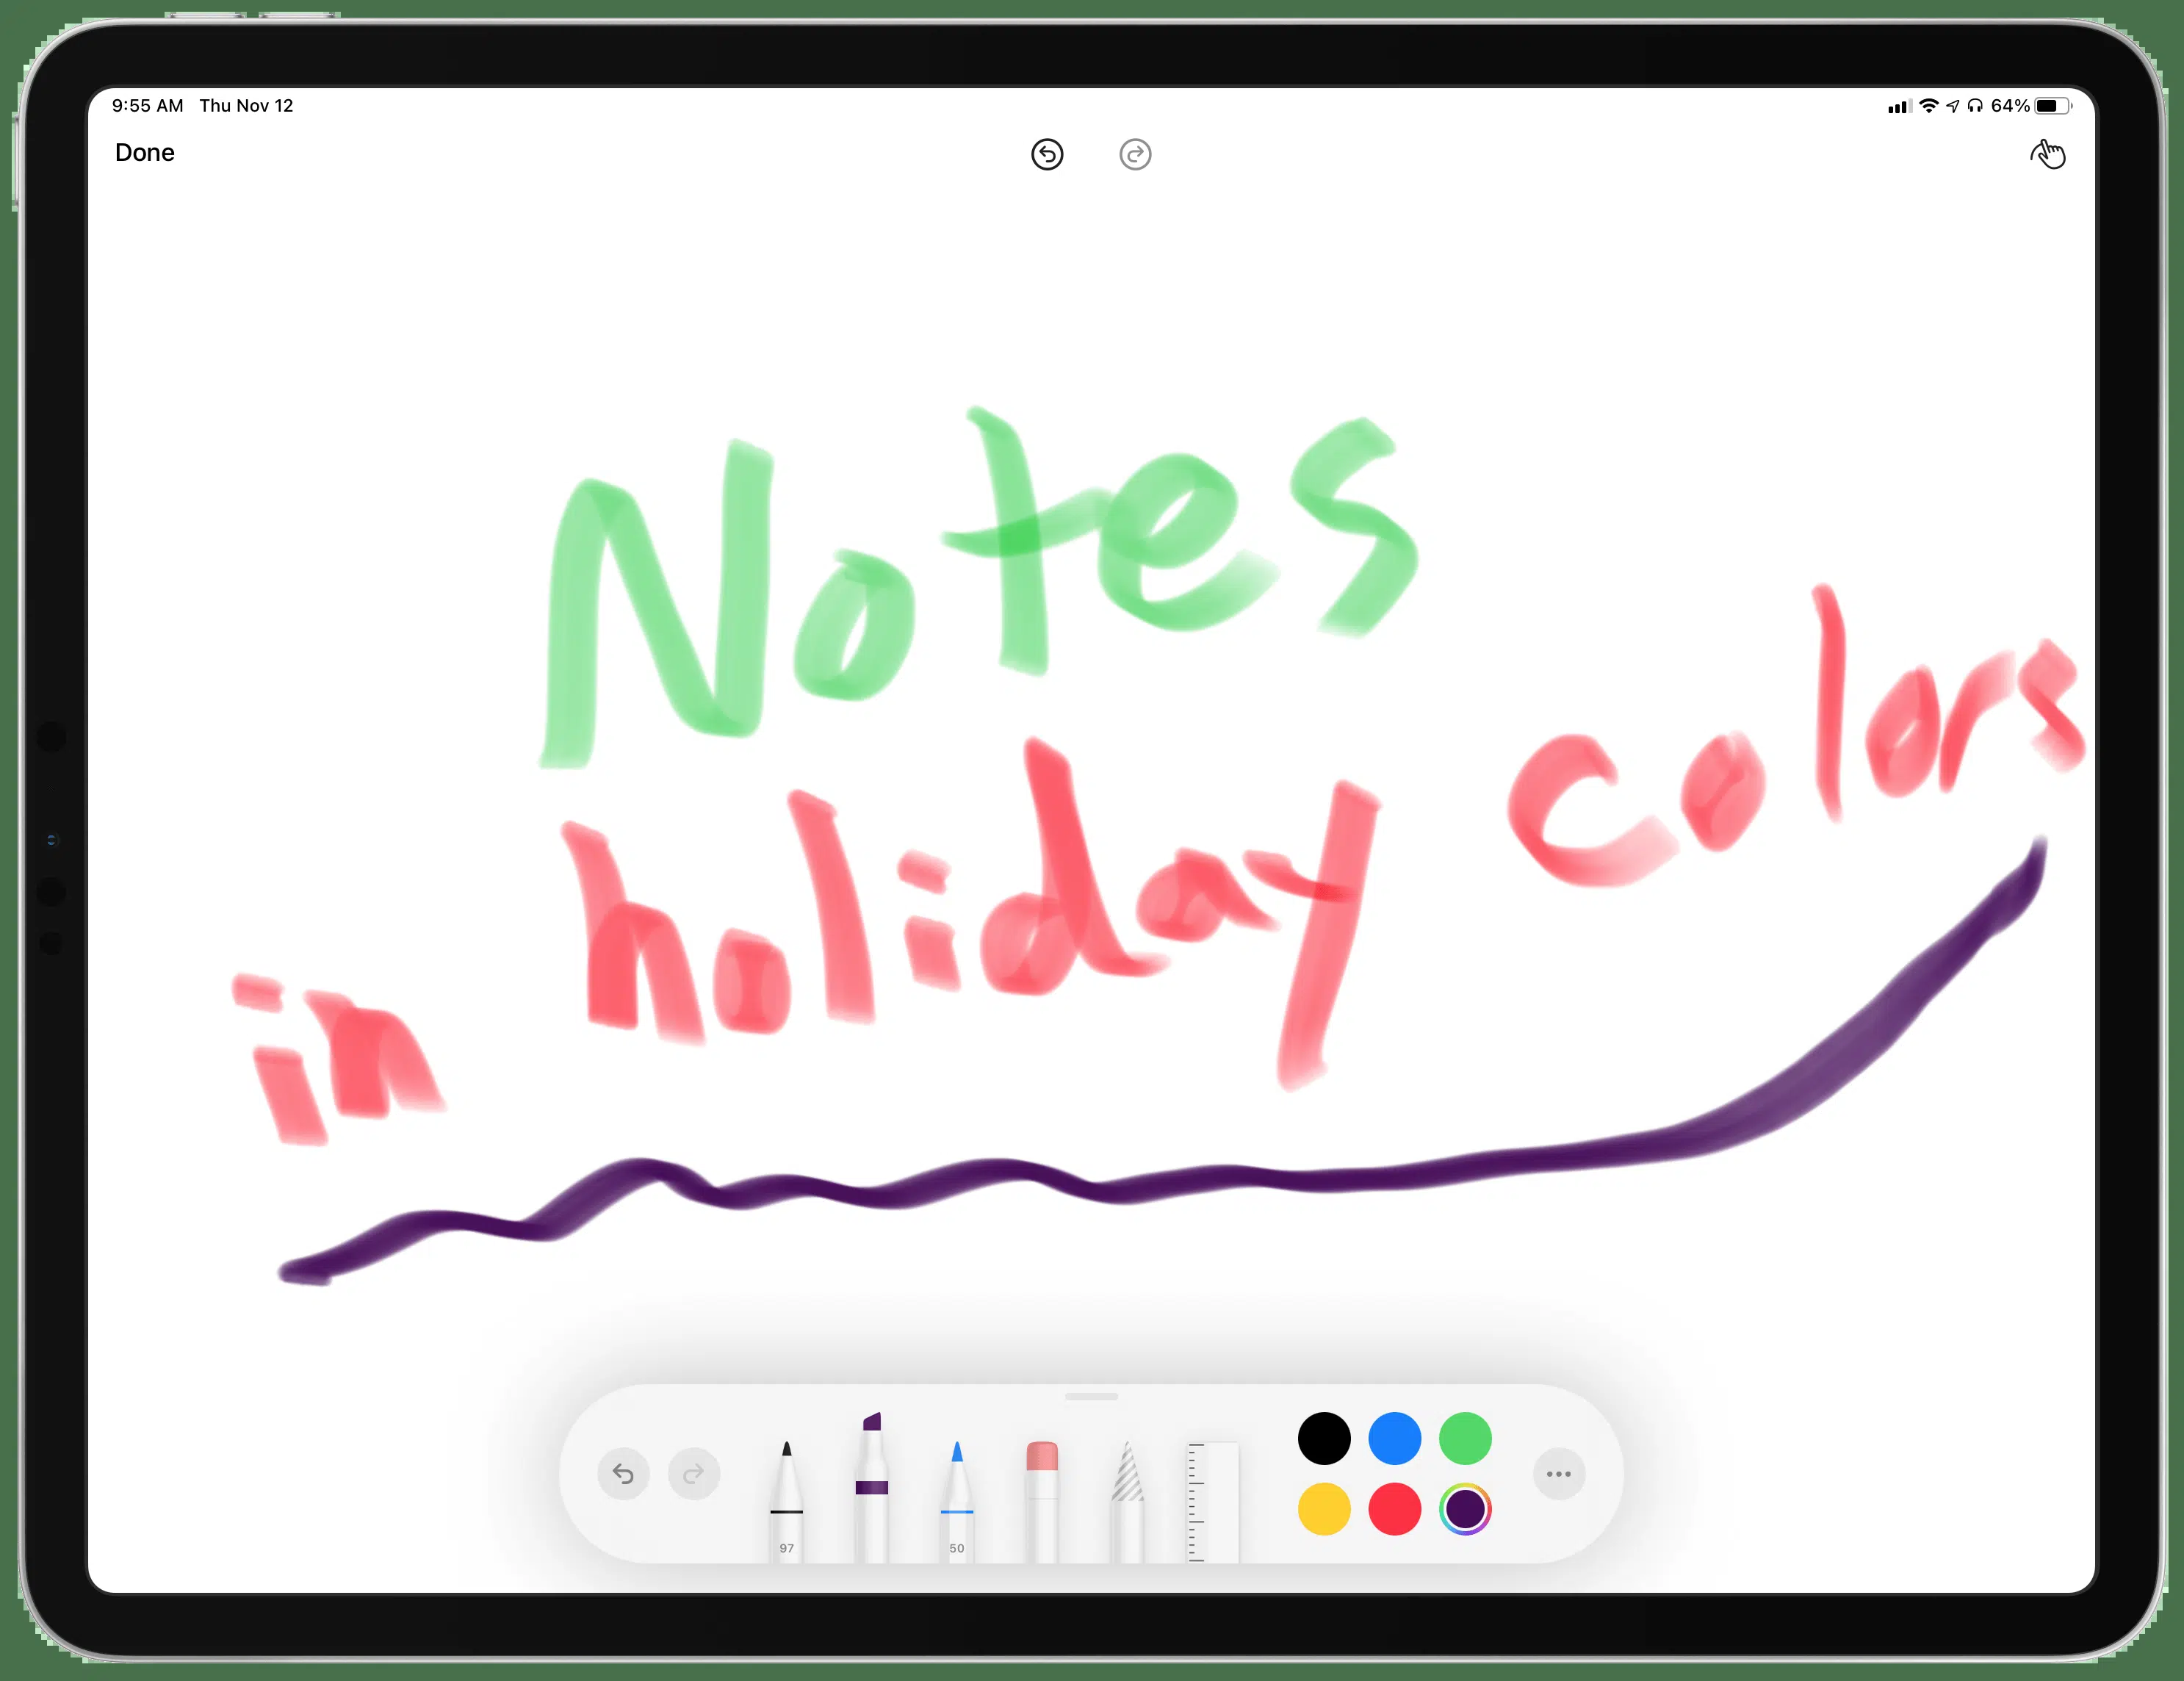 9:55 AM Thu Nov 12 64%
Done
Notes
in holiday colors
97 50